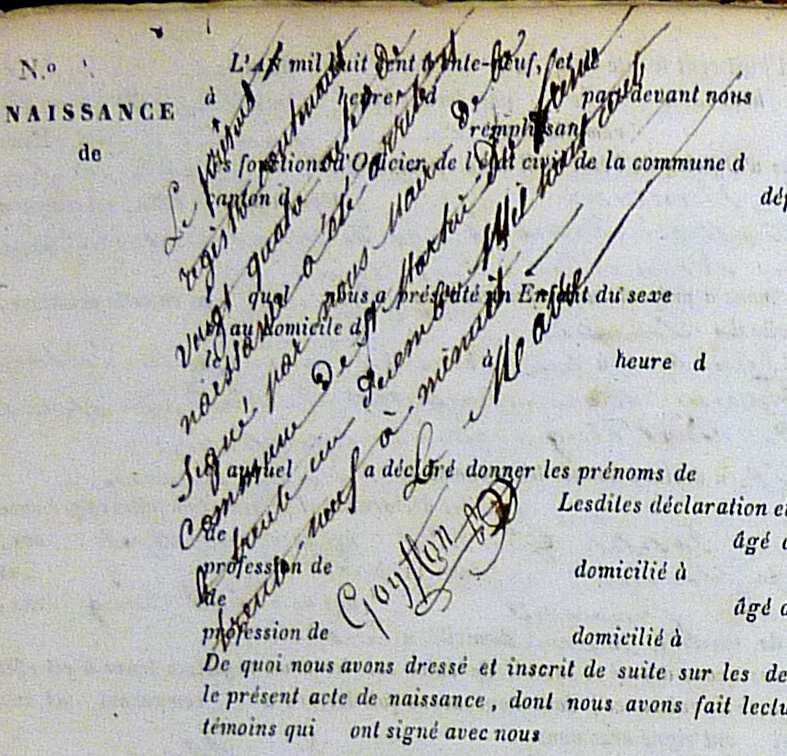 N.º
NAISSANCE
de
L'AN mil huit cent trente-neuf, et le
à heure d par-devant nous
remplissant
les fonctions d'Officier de l'état civil de la commune d
canton d dép
que nous a présenté un Enfant du sexe
au domicile d
le à heure d
auquel a déclaré donner les prénoms de
Lesdites déclaration et
de âgé d
profession de domicilié à
de âgé d
profession de domicilié à
De quoi nous avons dressé et inscrit de suite sur les de
le présent acte de naissance, dont nous avons fait lectu
témoins qui ont signé avec nous
Le présent
registre contenant
vingt quatre actes de
naissance a été arrêté et
signé par nous Maire de la
commune de St Martin du
le trente un décembre Mil huit cent
trente-neuf à minuit
Le Maire